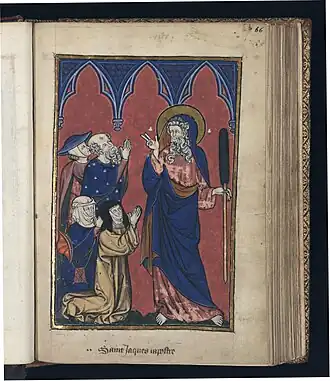 66
Saint Jaques apostre